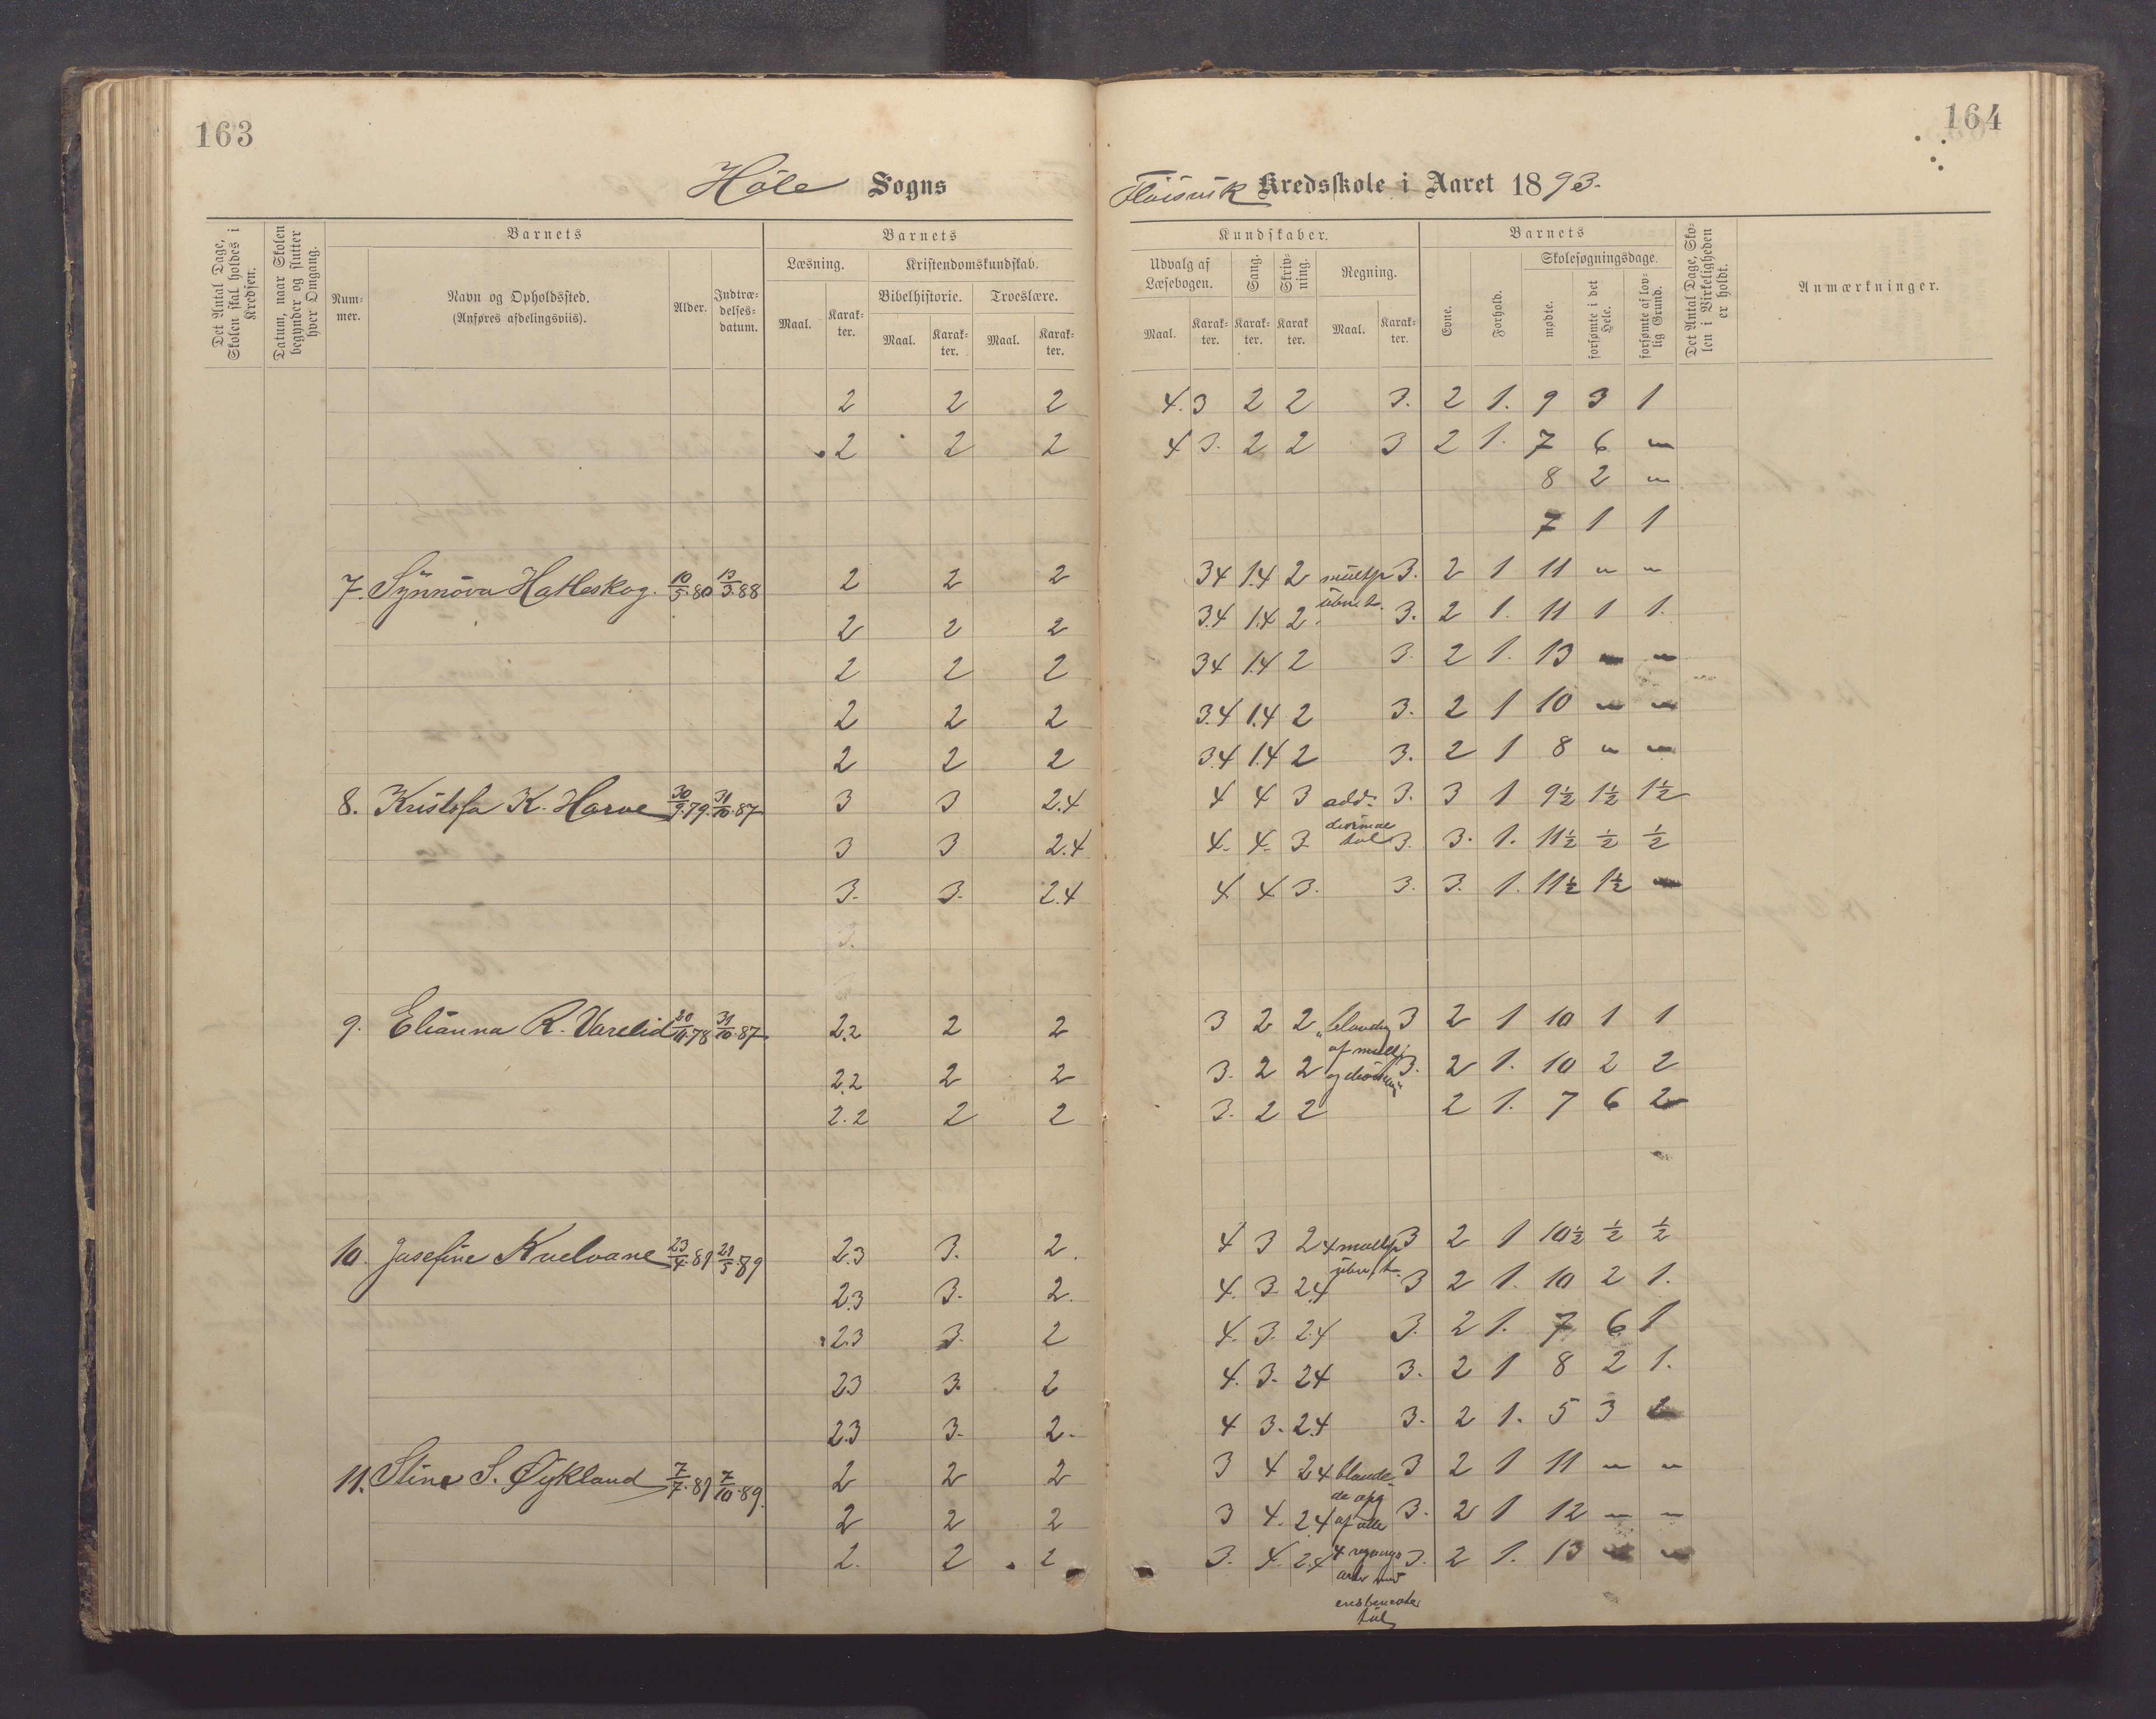 163
164
Høle Sogns
Fløisvik Kredsskole i Aaret 1893.
Det Antal Dage, Skolen skal holdes i Kredsen.
Datum, naar Skolen begynder og slutter hver Omgang.
Barnets
Num-mer.
Navn og Opholdssted. (Anføres afdelingsviis).
Alder.
Indtræ-delses-datum.
Barnets
Læsning.
Maal. Karak-ter.
Kristendomskundskab.
Bibelhistorie. Troeslære.
Maal. Karak-ter. Maal. Karak-ter.
Kundskaber.
Udvalg af Læsebogen.
Maal. Karak-ter.
Sang.
Karak-ter.
Skriv-ning.
Karak-ter.
Regning.
Maal. Karak-ter.
Barnets
Evne.
Forhold.
Skolesøgningsdage.
mødte.
forsømte i det Hele.
forsømte af lov-lig Grund.
Det Antal Dage, Sko-len i Virkeligheden er holdt.
Anmærkninger.
2 2 2 4.3 2 2 3. 2 1. 9 3 1
2 2 2 4 3. 2 2 3 2 1. 7 6 "
8 2 "
7 1 1
7. Synnøva Hatleskog. 10/5.80 13/3.88 2 2 2 34 1.4 2 multp 3. 2 1 11 " "
2 2 2 3.4 1.4 2. 3. 2 1. 11 1 1.
2 2 2 34 1.4 2 3. 2 1. 13 " "
2 2 2 3.4 1.4 2 3. 2 1 10 " "
2 2 2 3.4 1.4 2 3. 2 1 8 " "
8. Kristofa K. Harve 30/9.79. 31/10.87 3 3 2.4 4 4 3 add. 3. 3 1 9½ 1½ 1½
3 3 2.4 4. 4. 3. decimal tal 3. 3. 1. 11½ ½ ½
3. 3. 2.4 4 4 3. 3. 3. 1. 11½ 1½ "
3.
9. Elianna R. Varelid 20/11.78 31/10.87 2.2 2 2 3 2 2 " 3 2 1 10 1 1
2.2 2 2 3. 2 2 af multp 3. 2 1. 10 2 2
2.2 2 2 3. 2 2 2 1. 7 6 2
10. Josefine Kvelvane 23/4.81 21/5.89 2.3 3. 2. 4 3 24 multp 3 2 1 10½ ½ ½
2.3 3. 2. 4. 3. 2.4 3 2 1. 10 2 1.
2.3 3. 2 4. 3. 2.4 3. 2 1. 7 6 1
23 3. 2 4. 3. 24 3. 2 1 8 2 1.
2.3 3. 2. 4 3. 2.4 3. 2 1. 5 3 2
11. Stine S. Øykland 7/7.81 7/10.89. 2 2 2 3 4 24 blande 3 2 1 11 " "
2 2 2 3 4. 2.4 de opg af alle 3. 2 1 12 " "
2. 2 2 3. 4. 2.4 4 regnings 3. 2 1. 13 " "
arter med
ensbenevnte
tal